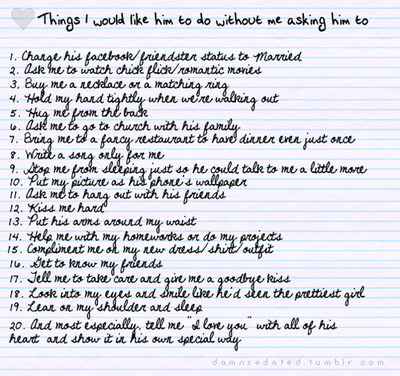 Things I would like him to do without me asking him to
1. Change his facebook/friendster status to Married
2. Ask me to watch chick flick/romantic movies
3. Buy me a necklace or a matching ring
4. Hold my hand tightly when we're walking out
5. Hug me from the back
6. Ask me to go to church with his family
7. Bring me to a fancy restaurant to have dinner even just once
8. Write a song only for me
9. Stop me from sleeping just so he could talk to me a little more
10. Put my picture as his phone's wallpaper
11. Ask me to hang out with his friends
12. Kiss me hard
13. Put his arms around my waist
14. Help me with my homeworks or do my projects
15. Compliment me on my new dress/shirt/outfit
16. Get to know my friends
17. Tell me to take care and give me a goodbye kiss
18. Look into my eyes and smile like he'd seen the prettiest girl
19. Lean on my shoulder and sleep
20. And most especially, tell me "I love you" with all of his
heart and show it in his own special way
damnsedated.tumblr.com